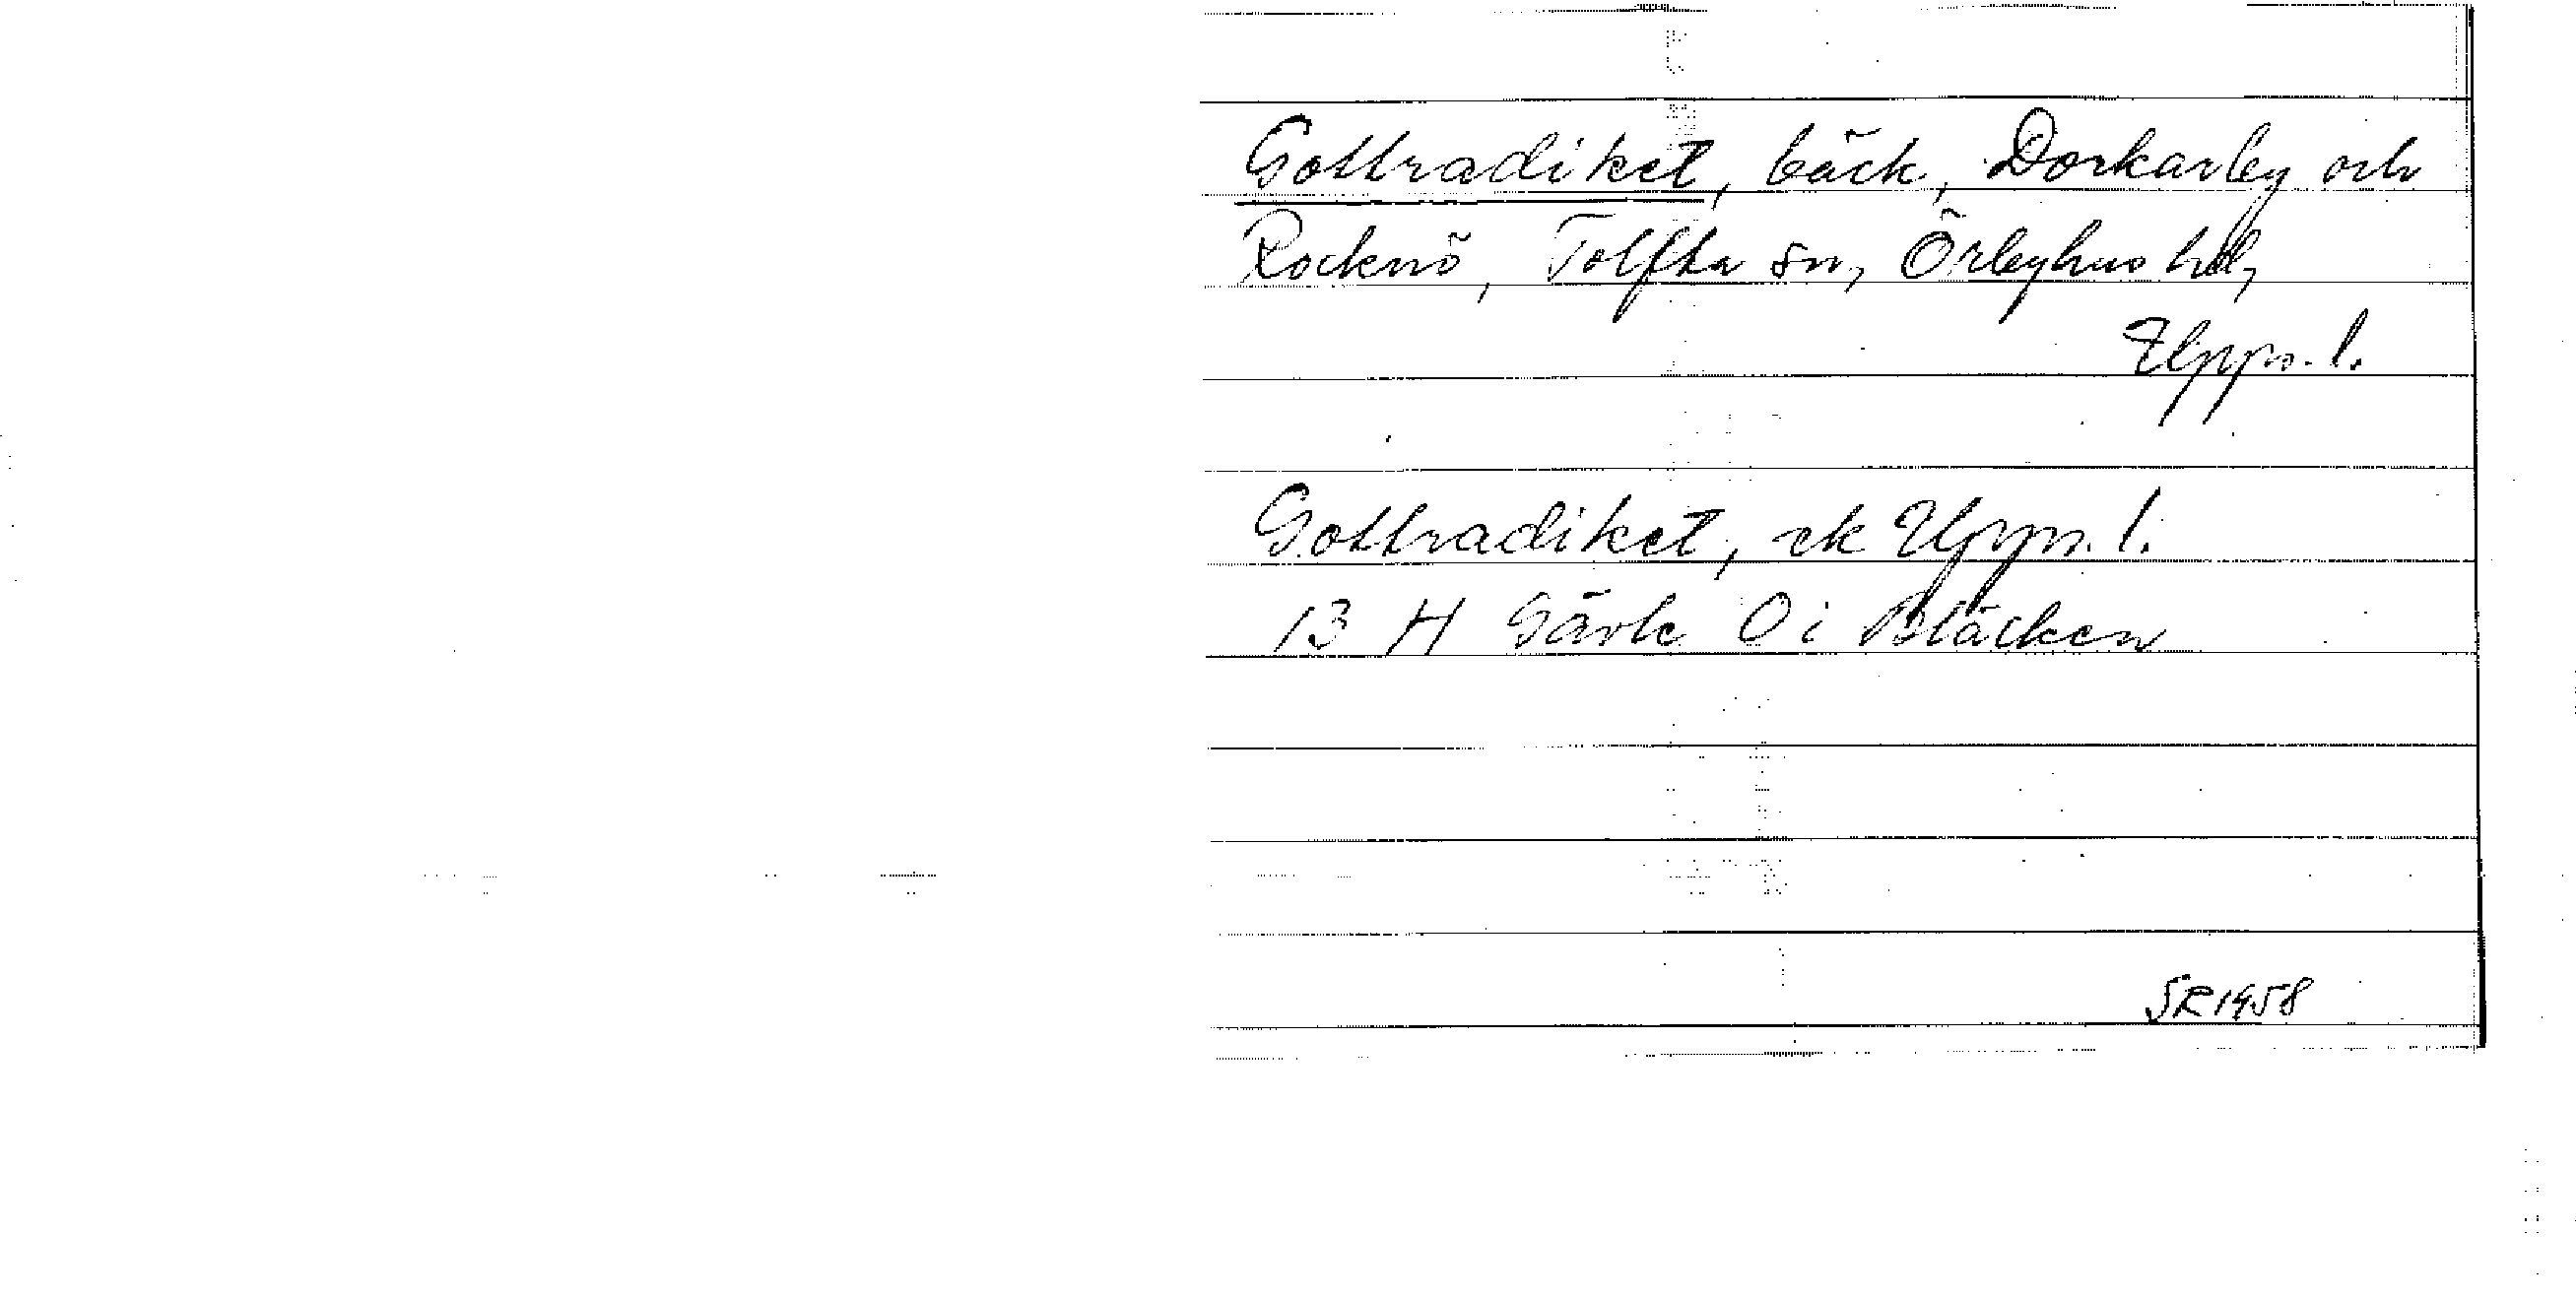 Gottradiket, bäck, Dorkarby och
Rocknö, Tolfta sn, Örbyhus hd,
Upps. l.
Gottradiket, ek Upps. l.
13 H Gävle Oi Bläcken
SR 1958